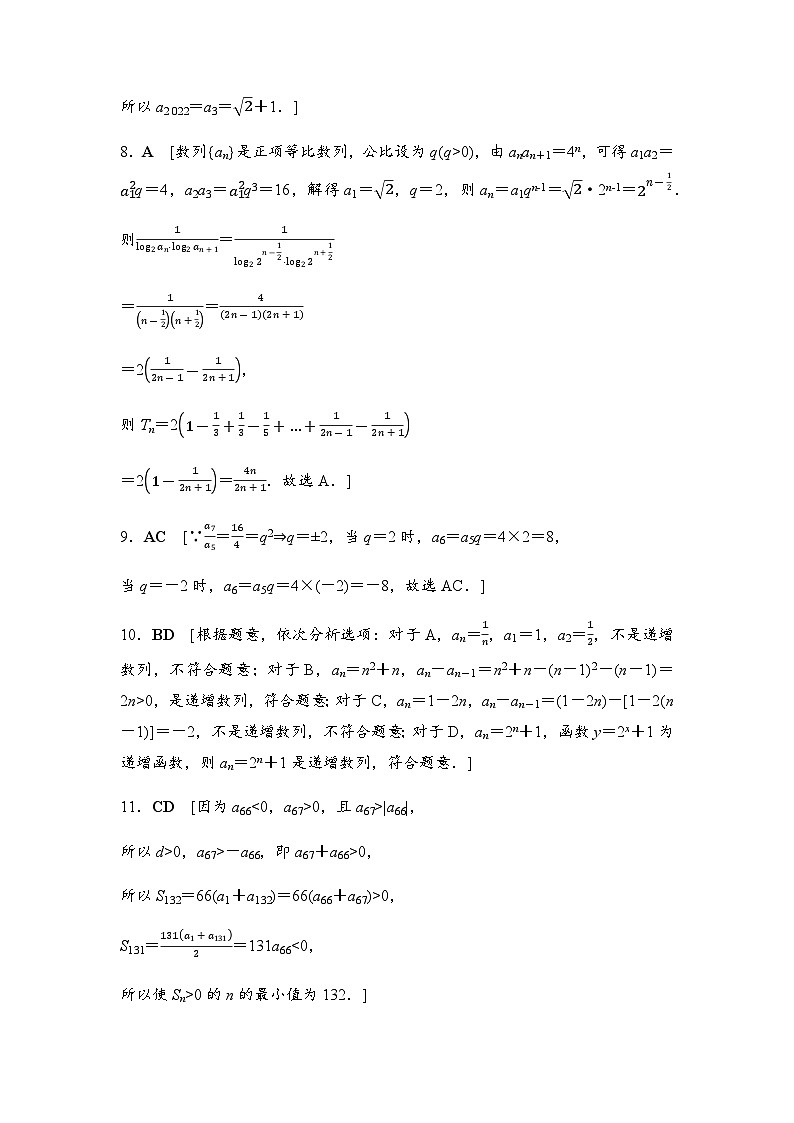 所以a₂ ₀₂₂＝a₃＝√2＋1．]
8．A　[数列{aₙ}是正项等比数列，公比设为q(q>0)，由aₙaₙ₊₁＝4ⁿ，可得a₁a₂＝
a₁²q＝4，a₂a₃＝a₁²q³＝16，解得a₁＝√2，q＝2，则aₙ＝a₁qⁿ⁻¹＝√2·2ⁿ⁻¹＝2^(n－1/2)．
则1/(log₂ aₙ·log₂ aₙ₊₁)＝1/(log₂ 2^(n－1/2)·log₂ 2^(n＋1/2))
＝1/((n－1/2)(n＋1/2))＝4/((2n－1)(2n＋1))
＝2(1/(2n－1)－1/(2n＋1))，
则Tₙ＝2(1－1/3＋1/3－1/5＋…＋1/(2n－1)－1/(2n＋1))
＝2(1－1/(2n＋1))＝4n/(2n＋1)．故选A．]
9．AC　[∵a₇/a₅＝16/4＝q²⇒q＝±2，当q＝2时，a₆＝a₅q＝4×2＝8，
当q＝－2时，a₆＝a₅q＝4×(－2)＝－8，故选AC．]
10．BD　[根据题意，依次分析选项：对于A，aₙ＝1/n，a₁＝1，a₂＝1/2，不是递增
数列，不符合题意；对于B，aₙ＝n²＋n，aₙ－aₙ₋₁＝n²＋n－(n－1)²－(n－1)＝
2n>0，是递增数列，符合题意；对于C，aₙ＝1－2n，aₙ－aₙ₋₁＝(1－2n)－[1－2(n
－1)]＝－2，不是递增数列，不符合题意；对于D，aₙ＝2ⁿ＋1，函数y＝2ˣ＋1为
递增函数，则aₙ＝2ⁿ＋1是递增数列，符合题意．]
11．CD　[因为a₆₆<0，a₆₇>0，且a₆₇>|a₆₆|，
所以d>0，a₆₇>－a₆₆，即a₆₇＋a₆₆>0，
所以S₁₃₂＝66(a₁＋a₁₃₂)＝66(a₆₆＋a₆₇)>0，
S₁₃₁＝131(a₁＋a₁₃₁)/2＝131a₆₆<0，
所以使Sₙ>0的n的最小值为132．]